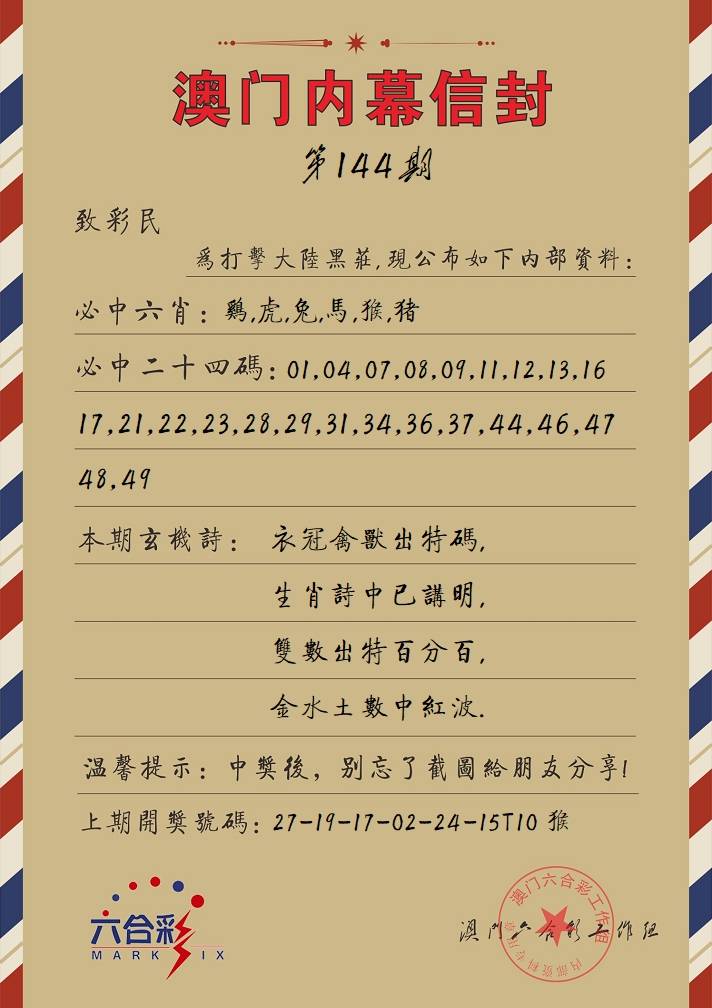 澳门内幕信封
第144期
致彩民
爲打擊大陸黑莊,現公布如下内部資料:
必中六肖: 鷄,虎,兔,馬,猴,猪
必中二十四碼: 01,04,07,08,09,11,12,13,16
17,21,22,23,28,29,31,34,36,37,44,46,47
48,49
本期玄機詩: 衣冠禽獸出特碼,
生肖詩中已講明,
雙數出特百分百,
金水土數中紅波.
温馨提示: 中獎後, 别忘了截圖給朋友分享!
上期開獎號碼: 27-19-17-02-24-15T10 猴
六合彩
MARK SIX
澳门六合彩工作组
内部资料专用章
澳门六合彩工作组